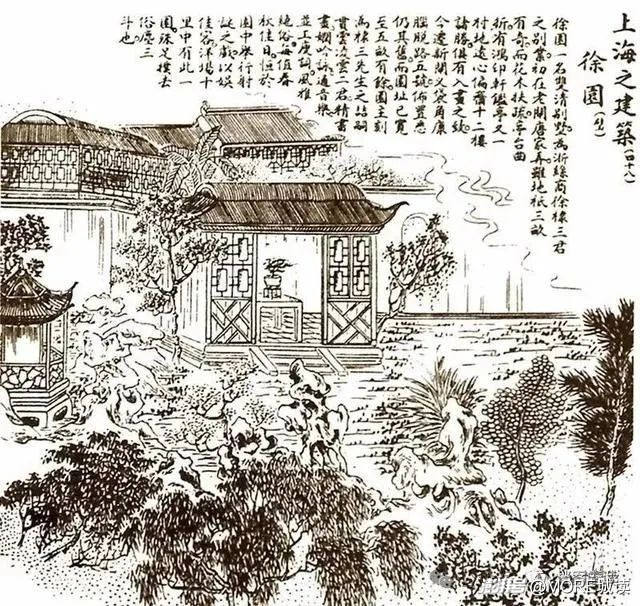 上海之建築(四十八)
徐園
徐園一名雙清別墅為浙絲商徐棣三君
之別業初在老閘唐家弄雖地祇三畝
有奇而花木扶疏亭台曲
折有鴻印軒鑑亭又一
村地遠心偏齋十二樓
諸勝俱有入畫之致
今遷新閘大袋角康
腦脫路五號佈置悉
仍其舊而園址已寬
至五畝有餘園主則
為棣三先生之喆嗣
貫雲凌雲二君精書
畫嫻吟詠通音樂
並工度詞風雅
絕俗每值春
秋佳日恒於
園中舉行射
謎之戲以娛
佳客洋場十
里中有此一
園殊足撲去
俗塵三
斗也
@MORE城读